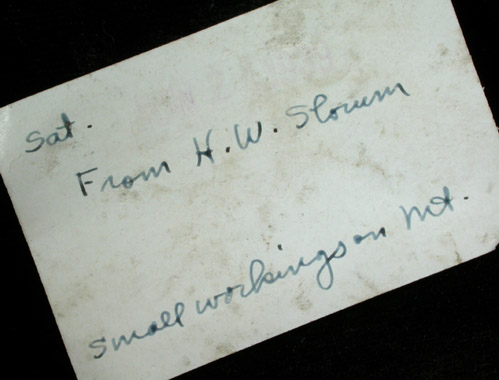 Sat.
From H.W. Slocum
Small workings on Mt.